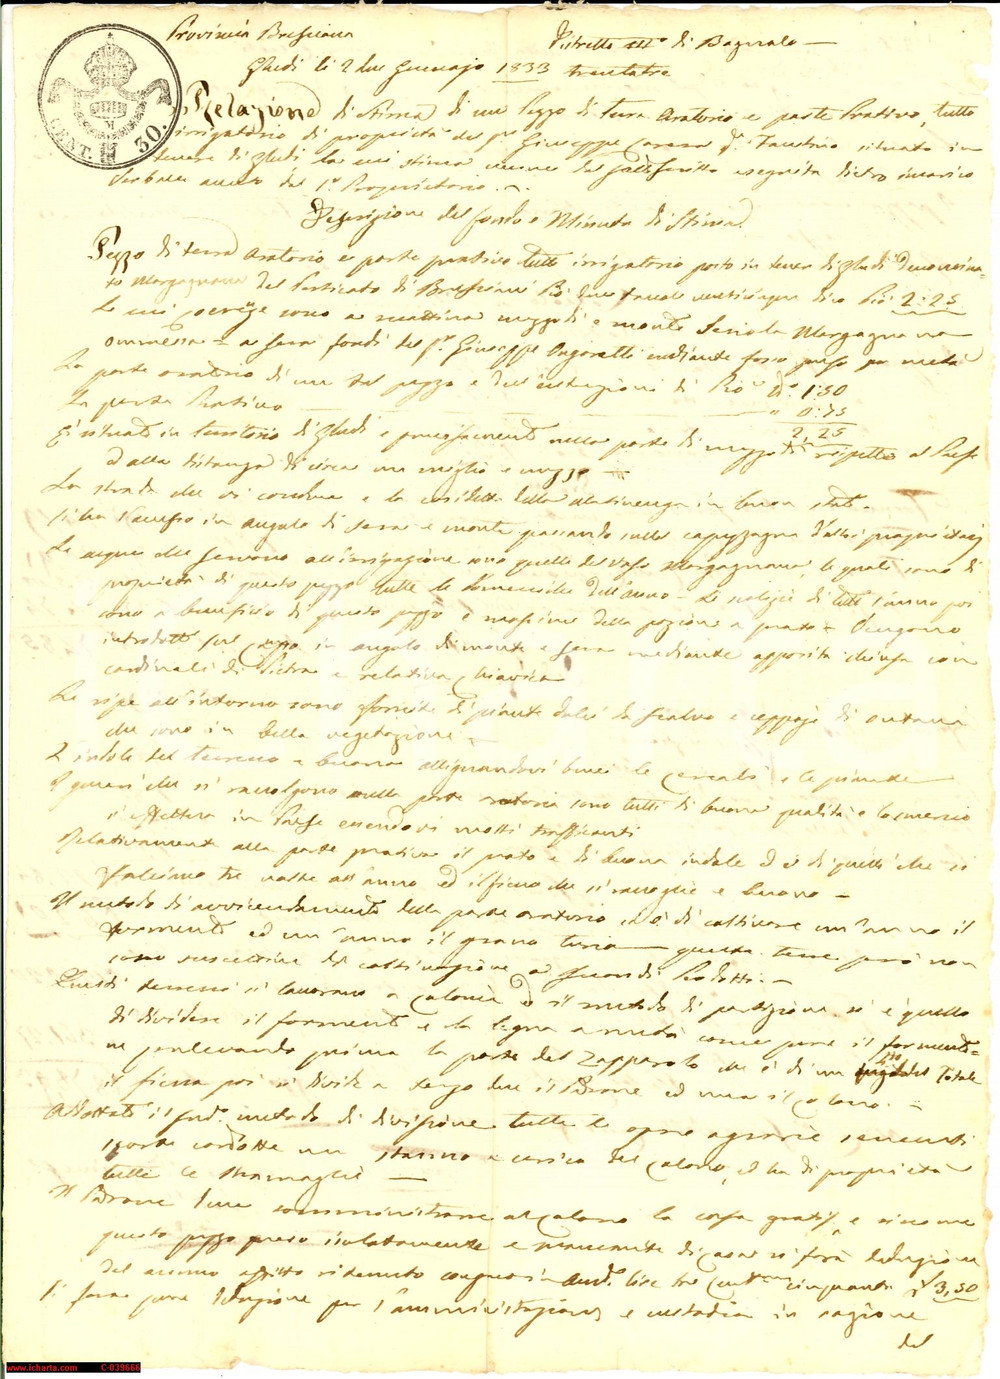 Provincia Bresciana
Distretto III° di Bagnolo
Ghedi li 2 due Gennajo 1833 trentatre
CENT. 30.
Relazione di Stima di un Pezzo di terra Aratorio e parte Prativo, tutto
irrigatorio di proprietà del Sr Giuseppe qm Faustino situato in
tenere di Ghedi la cui stima venne dal sottoscritto eseguita dietro incarico
Verbale avuto dal Sr Proprietario.
Descrizione del fondo e Minuta di Stima
Pezzo di terra Aratorio e parte prativo tutto irrigatorio posto in tener di Ghedi denomina-
to Morgagnana del Perticato di Bresciani Pò due tavole venticinque dico Pio 2:25
Le cui coerenze sono a mattina mezzodì e monte Seriola Morgagnana
ommessa = a sera fondi del Sr Giuseppe mediante fosso per metà
La parte aratorio di un tal pezzo è dell'estensione di Pio 1:50
La parte Prativo " 0:75
2,25
È situato in territorio di Ghedi e precisamente nella parte di mezzodì rispetto al Paese
ed alla distanza di circa un miglio e mezzo
La strada che vi conduce è la cosidetta della in buon stato.
Si ha l'accesso in angolo di sera e monte passando sulla capezzagna d'altri proprietarj
Le acque che servono all'irrigazione sono quelle del Vaso Morgagnana, le quali sono di
proprietà di questo pezzo tutte le Domeniche dell'anno - Le di tutto l'anno poi
sono a beneficio di questo pezzo e massime della porzione a prato - Vengono
introdotte sul in angolo di monte e sera mediante apposita chiusa con
cardinali di Pietra e relativa Chiavica
Le ripe all'intorno sono fornite di piante dolci da e ceppaje di ontano
che sono in bella vegetazione.
L'indole del terreno è buona allignandovi bene le cereali e le piante
I generi che si raccolgono nella parte aratoria sono tutti di buona qualità e lo smercio
si effettua in Paese essendovi molti trafficanti
Relativamente alla parte prativa il prato è di buona indole ed è di quelli che si
falciano tre volte all'anno ed il fieno che si raccoglie è buono
Il metodo di avvicendamento della parte aratorio si è di coltivare un'anno il
formento ed un'anno il grano turco questa terra però non
sono suscettive di coltivazione a secondi Prodotti.
Questi terreni si lavorano a Colonia ed il metodo di partizione si è quello
di dividere il formento e la legna a metà come pure il formento-
ne prelevando prima la parte del Zapparolo che è di un totale
il fieno poi si divide a terzo due il Padrone ed uno il colono.
Adottato il sud.o metodo di divisione tutte le opre agrarie sementi
scorte condotte un stanno a carico del Colono, ed ha di proprietà
tutte le
Il Padrone deve somministrare al Colono la casa gratis, e siccome
questo pezzo preso isolatamente è mancante di casa si farà deduzione
del annuo affitto ritenuto congruo in Austr. lire tre Centmi cinquanta £ 3,50
Si farà pure deduzione per l'amministrazione e custodia in ragione
del
www.icharta.com C-039666